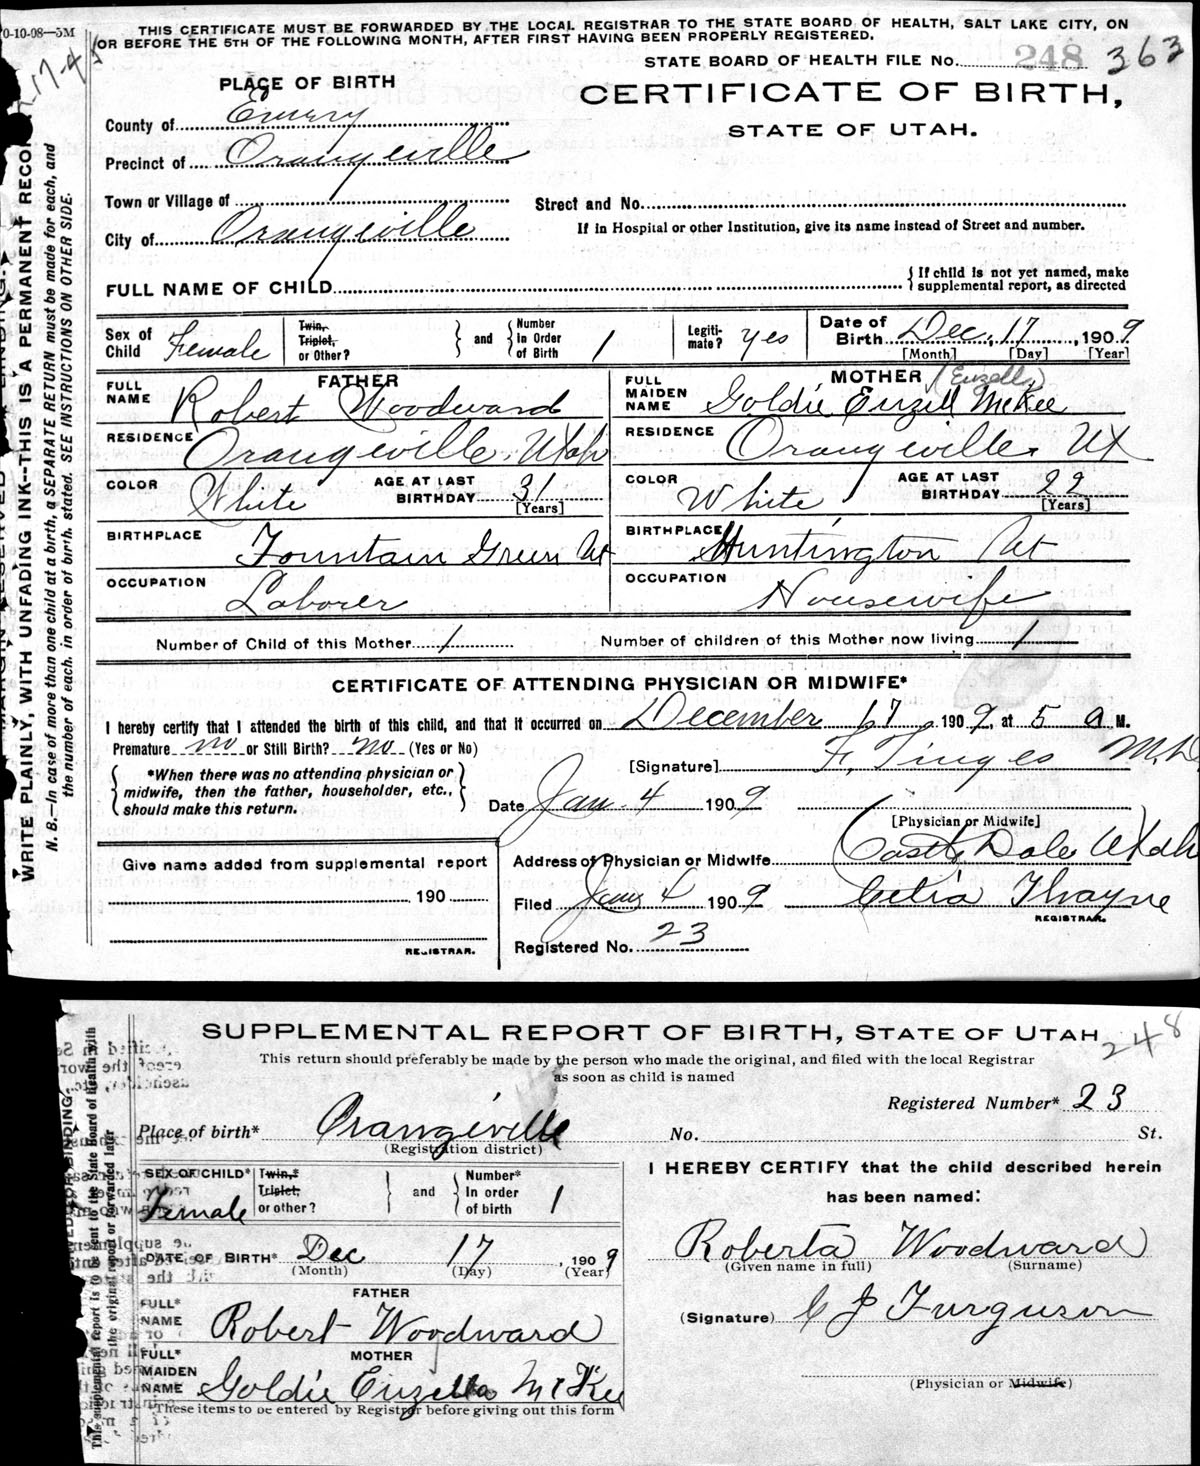 0-10-08—5M
THIS CERTIFICATE MUST BE FORWARDED BY THE LOCAL REGISTRAR TO THE STATE BOARD OF HEALTH, SALT LAKE CITY, ON
OR BEFORE THE 5TH OF THE FOLLOWING MONTH, AFTER FIRST HAVING BEEN PROPERLY REGISTERED.
STATE BOARD OF HEALTH FILE No. 248 363
PLACE OF BIRTH
CERTIFICATE OF BIRTH,
STATE OF UTAH.
County of Emery
Precinct of Orangeville
Town or Village of
Street and No.
City of Orangeville
If in Hospital or other Institution, give its name instead of Street and number.
FULL NAME OF CHILD
{ If child is not yet named, make
supplemental report, as directed
Sex of Child Female
Twin, Triplet, or Other?
} and { Number In Order of Birth 1
Legiti-mate? yes
Date of Birth Dec. 17, 1909
[Month] [Day] [Year]
FATHER
FULL NAME Robert Woodward
RESIDENCE Orangeville, Utah
COLOR White AGE AT LAST BIRTHDAY 31
[Years]
BIRTHPLACE Fountain Green Ut
OCCUPATION Laborer
MOTHER (Euzella)
FULL MAIDEN NAME Goldie Euzell McKee
RESIDENCE Orangeville Ut
COLOR White AGE AT LAST BIRTHDAY 22
[Years]
BIRTHPLACE Huntington Ut
OCCUPATION Housewife
Number of Child of this Mother 1 Number of children of this Mother now living 1
CERTIFICATE OF ATTENDING PHYSICIAN OR MIDWIFE*
I hereby certify that I attended the birth of this child, and that it occurred on December 17, 1909, at 5 a M.
Premature no or Still Birth? no (Yes or No)
{ *When there was no attending physician or
midwife, then the father, householder, etc.,
should make this return. }
[Signature] F. Tinges M.D.
Date Jan. 4 1909
[Physician or Midwife]
Address of Physician or Midwife Castle Dale Utah
Filed Jany 4 1909 Celia Thayne
REGISTRAR.
Registered No. 23
Give name added from supplemental report
190
REGISTRAR.
WRITE PLAINLY, WITH UNFADING INK--THIS IS A PERMANENT RECO
N. B.—In case of more than one child at a birth, a SEPARATE RETURN must be made for each, and
the number of each, in order of birth, stated. SEE INSTRUCTIONS ON OTHER SIDE.
SUPPLEMENTAL REPORT OF BIRTH, STATE OF UTAH
248
This return should preferably be made by the person who made the original, and filed with the local Registrar
as soon as child is named
Registered Number* 23
Place of birth* Orangeville No. St.
(Registration district)
SEX OF CHILD* Female
Twin,* Triplet, or other?
} and { Number* In order of birth 1
DATE OF BIRTH* Dec 17, 1909
(Month) (Day) (Year)
FATHER
FULL* NAME Robert Woodward
MOTHER
FULL* MAIDEN NAME Goldie Euzella McKee
*These items to be entered by Registrar before giving out this form
I HEREBY CERTIFY that the child described herein
has been named:
Roberta Woodward
(Given name in full) (Surname)
(Signature) C J Furguson
(Physician or Midwife)
This supplemental report is to be sent to the State Board of Health with
the original report or forwarded later